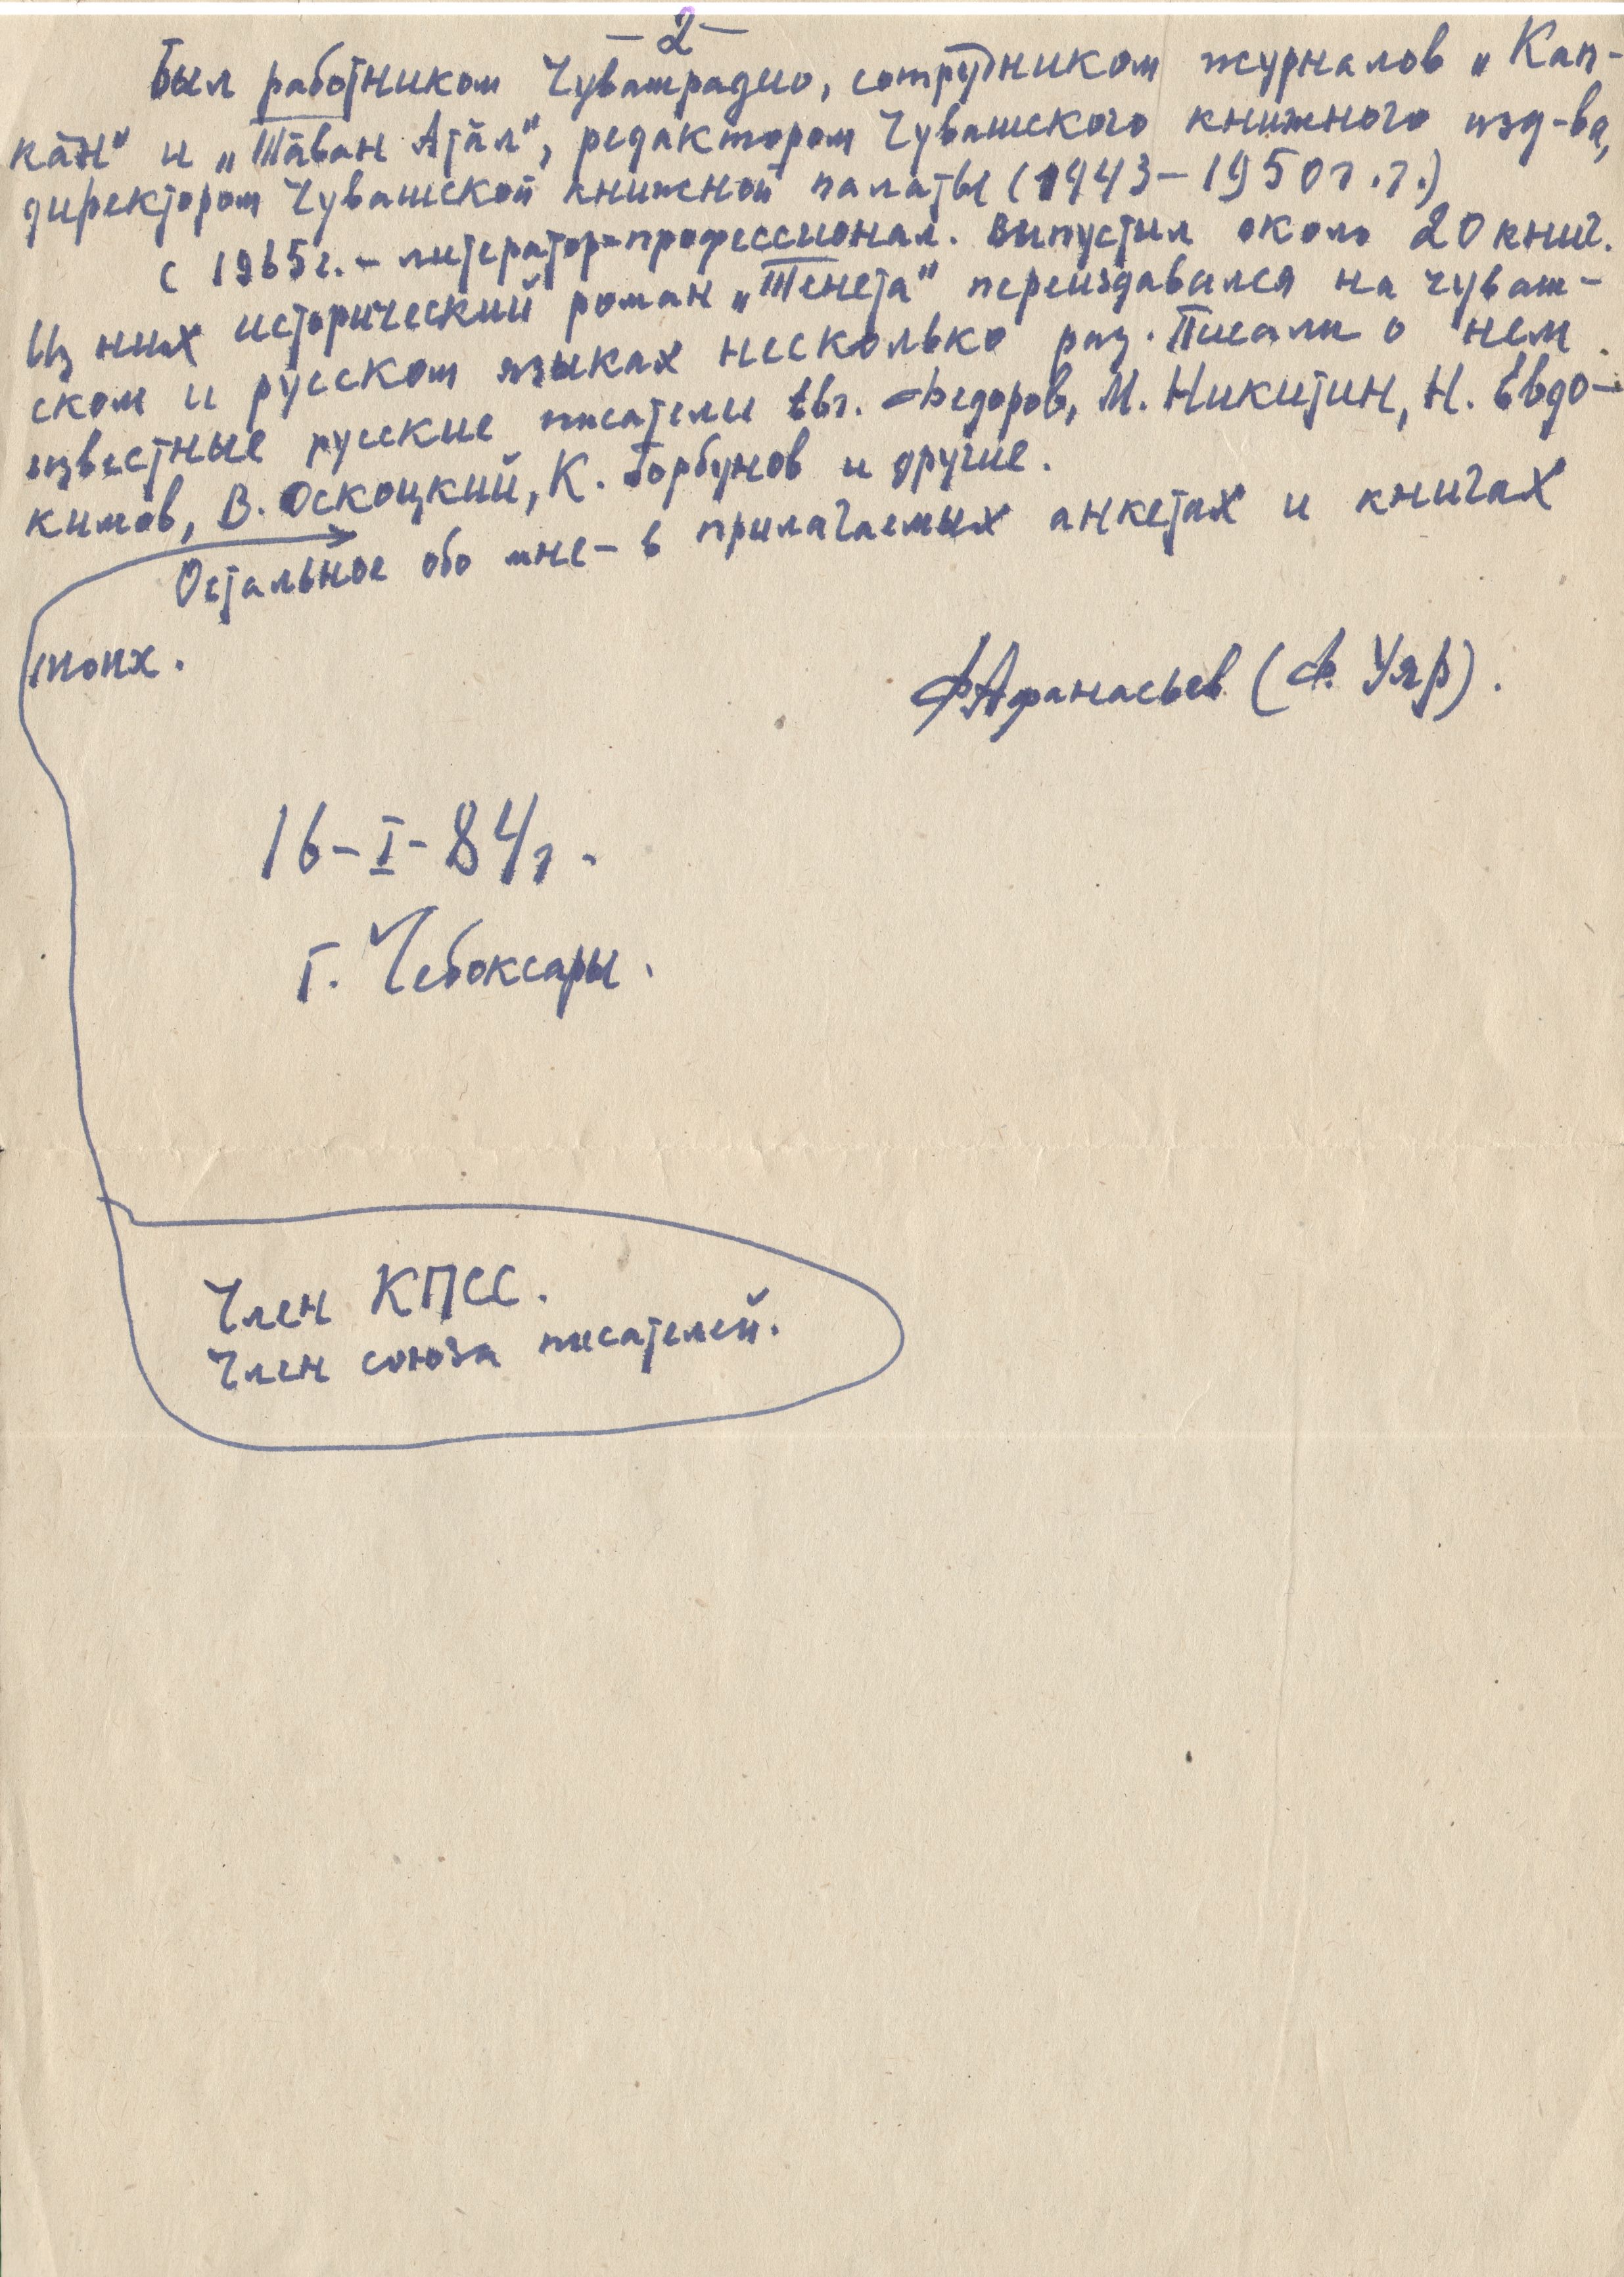 – 2 –
Был работником Чувашрадио, сотрудником журналов „Кап-
кӑн" и „Тӑван Атӑл", редактором Чувашского книжного изд-ва,
директором Чувашской книжной палаты (1943–1950 г.г.)
С 1965 г. – литератор-профессионал. Выпустил около 20 книг.
Из них исторический роман „Тенета" переиздавался на чуваш-
ском и русском языках несколько раз. Писали о нем
известные русские писатели Евг. Федоров, М. Никитин, Н. Евдо-
кимов, В. Оскоцкий, К. Горбунов и другие.
Остальное обо мне – в прилагаемых анкетах и книгах
моих.
ФАфанасьев (Ф. Уяр).
16–I–84 г.
г. Чебоксары.
Член КПСС.
Член союза писателей.